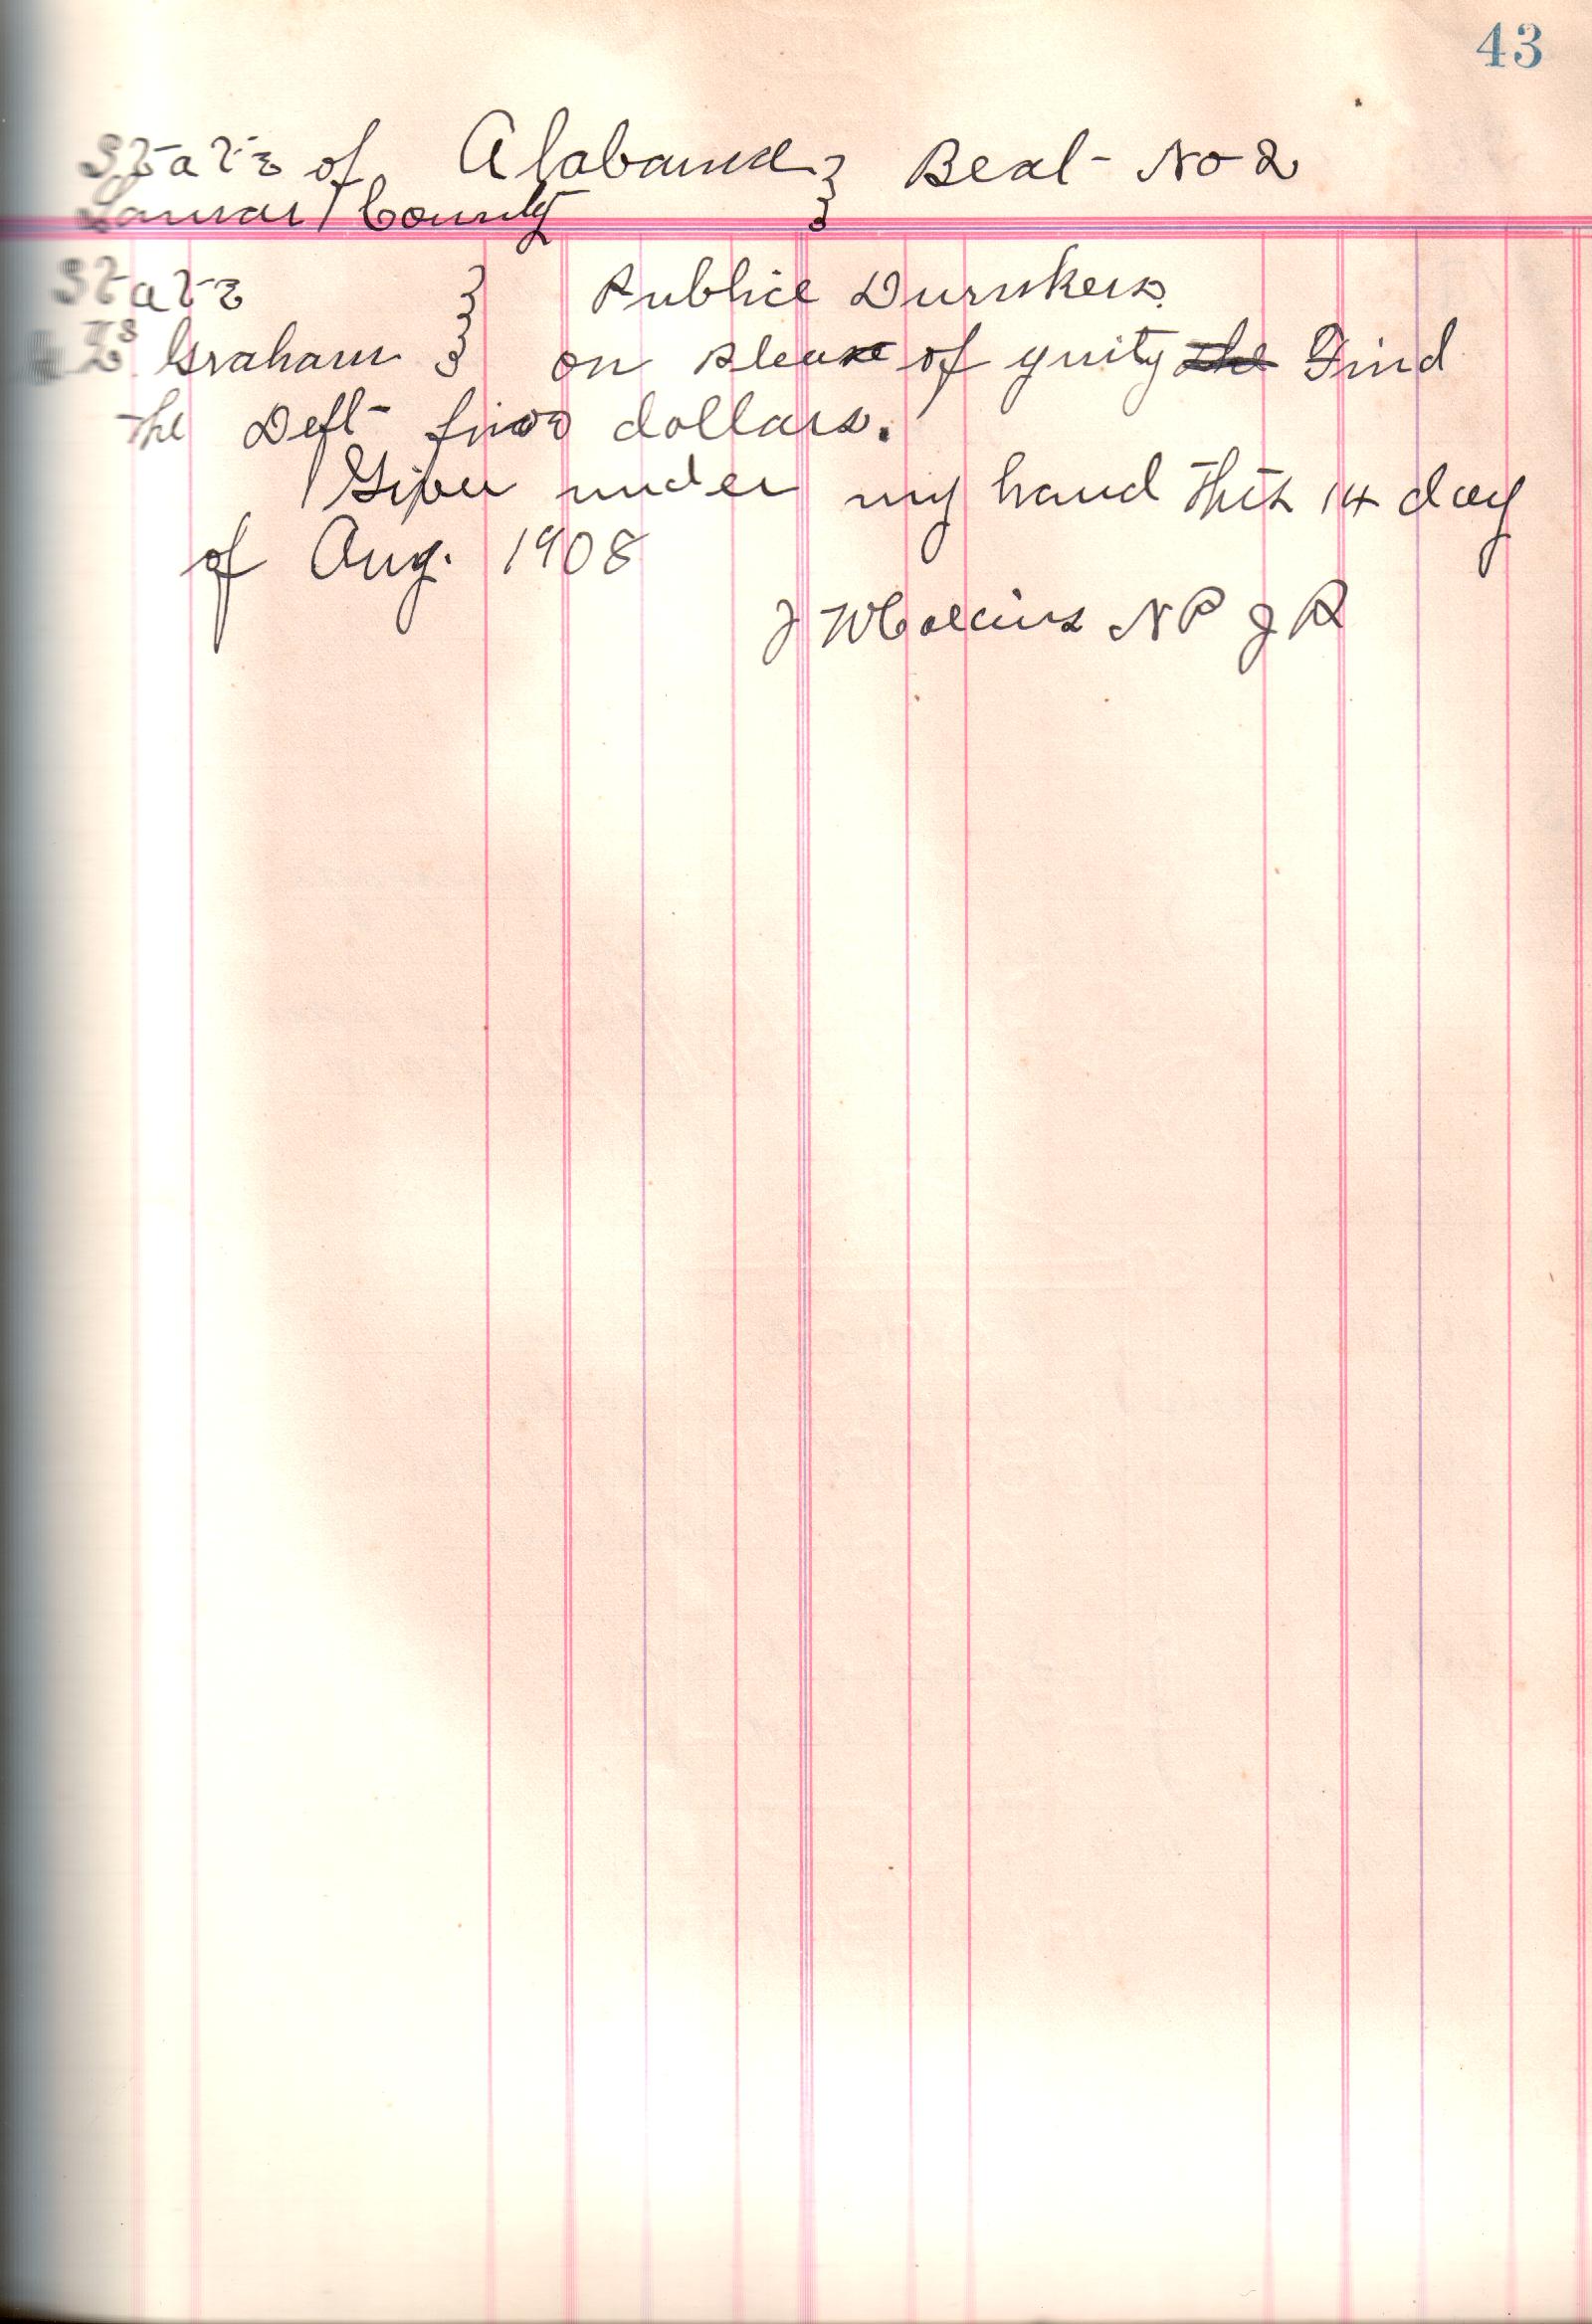 43
State of Alabama } Beat No 2
Lamar County }
State } Public Durnkers
vs
Graham } on pleae of guity the Find
the Deft five dollars.
Given under my hand this 14 day
of Aug. 1908
J W Collins N P J P